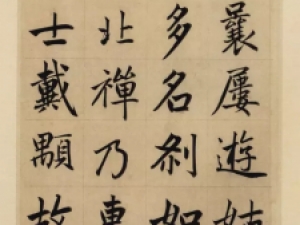 曩屢遊姑
多名刹如
北禪乃東
士戴顒故